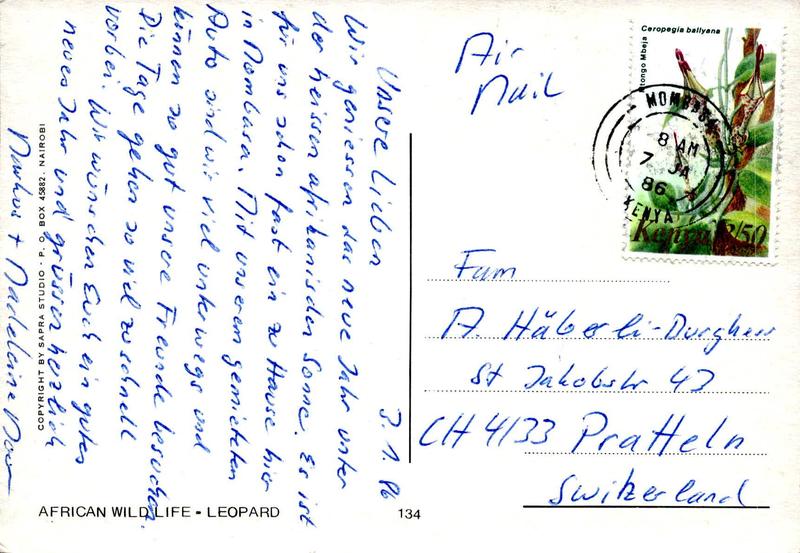 Unsere Lieben 3.1.86
Wir geniessen das neue Jahr unter
der heissen afrikanischen Sonne. Es ist
für uns schon fast ein zu Hause hier
in Mombasa. Mit unserem gemieteten
Auto sind wir viel unterwegs und
können so gut unsere Freunde besuchen.
Die Tage gehen so viel zu schnell
vorbei. Wir wünschen Euch ein gutes
neues Jahr und grüssen herzlich
Markus + Madeleine
COPYRIGHT BY SAPRA STUDIO · P. O. BOX 45882 . NAIROBI
AFRICAN WILD LIFE - LEOPARD
134
Air
Mail
Ceropegia ballyana
Mtongo Mbeja
Kenya 2/50
MOMBASA
8 AM
7 JA
86
KENYA
Fam
A. Häberli-Burgherr
St Jakobstr 43
CH 4133 Pratteln
Switzerland